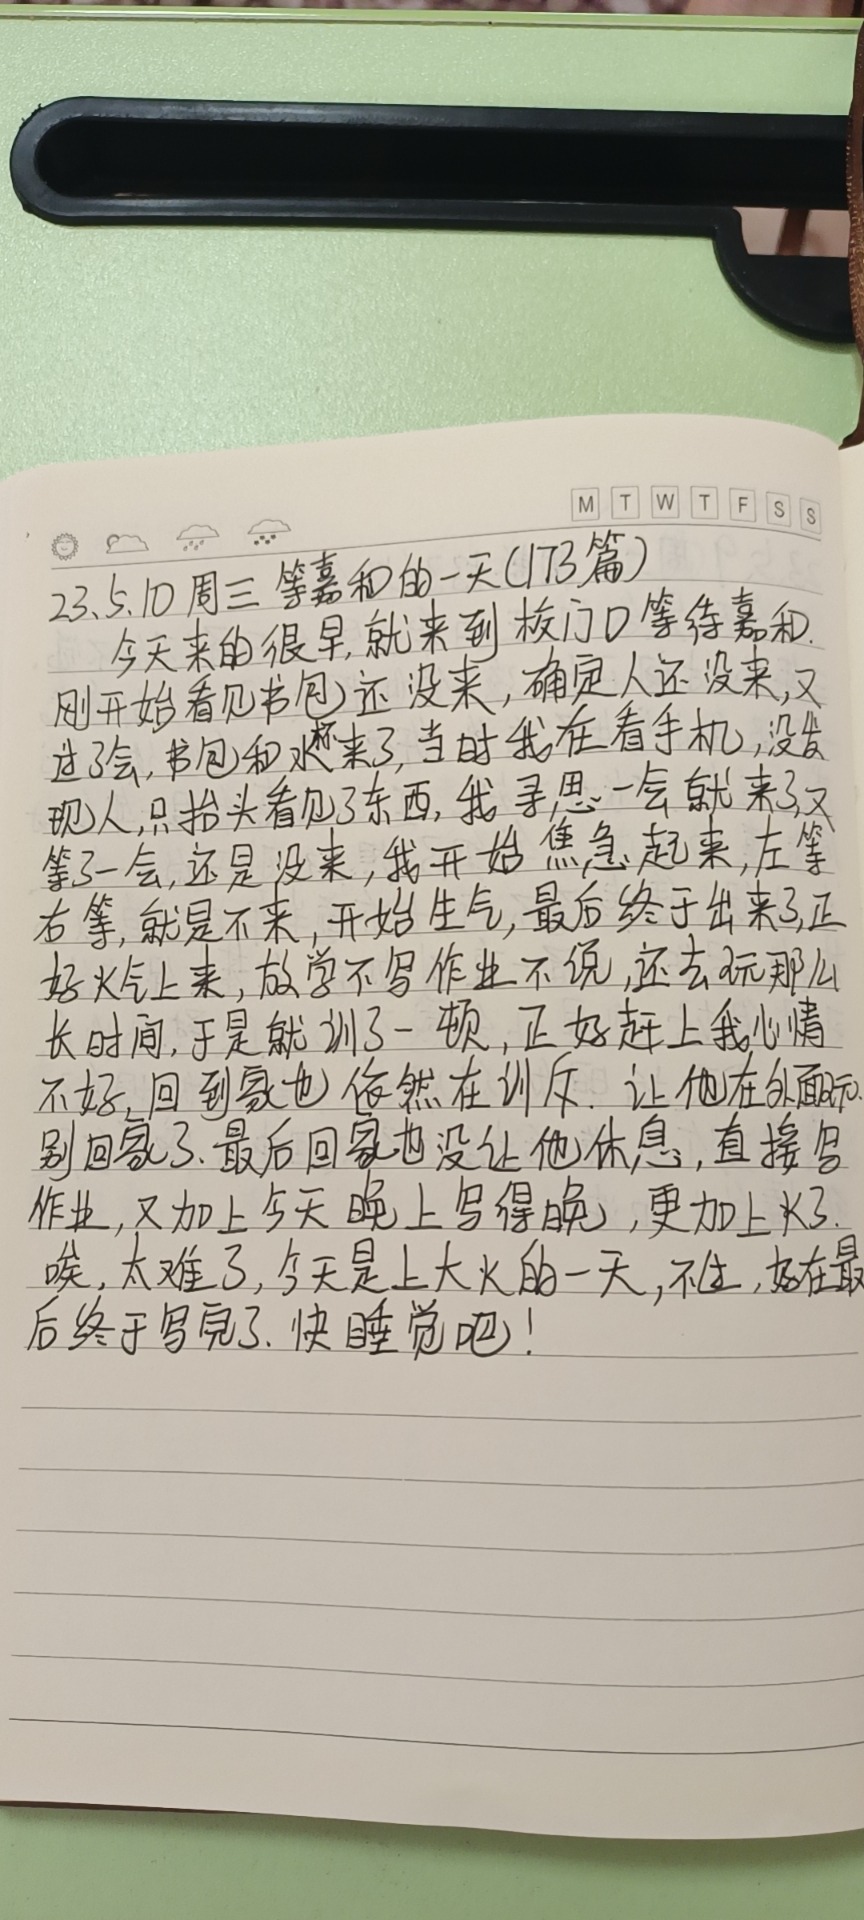 M T W T F S S
23.5.10 周三 等嘉和的一天(173篇)
今天来的很早,就来到校门口等待嘉和.
刚开始看见书包还没来,确定人还没来,又
过了会,书包和水杯来了,当时我在看手机,没发
现人,只抬头看见了东西,我寻思一会就来了,又
等了一会,还是没来,我开始焦急起来,左等
右等,就是不来,开始生气,最后终于出来了,正
好火气上来,放学不写作业不说,还去玩那么
长时间,于是就训了一顿,正好赶上我心情
不好,回到家也依然在训斥.让他在外面玩.
别回家了.最后回家也没让他休息,直接写
作业,又加上今天晚上写得晚,更加上火了.
唉,太难了,今天是上大火的一天,不生,好在最
后终于写完了.快睡觉吧!